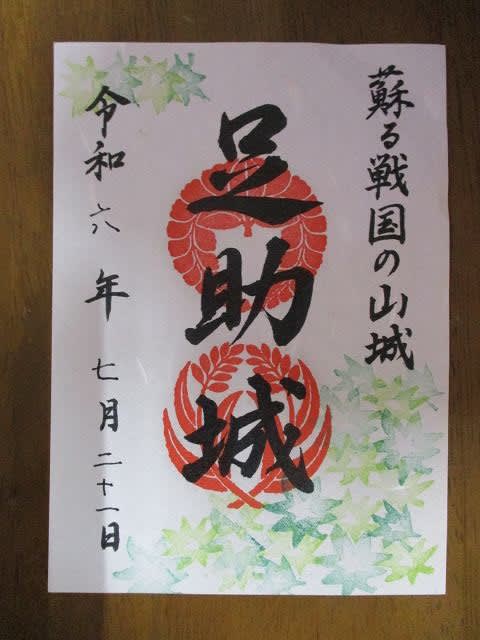 蘇る戦国の山城
足助城
令和六年七月二十一日